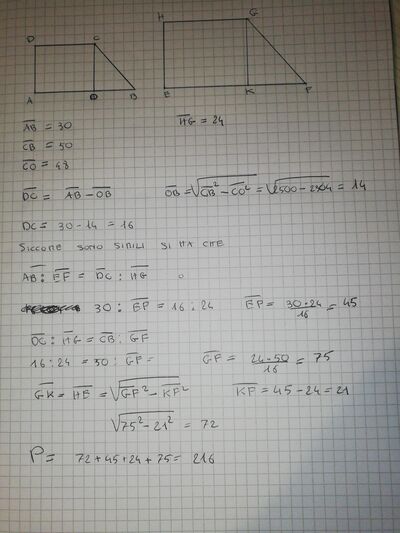 H G
D C
A O B E K F
AB = 30 HG = 24
CB = 50
CO = 48
DC = AB - OB OB = √CB² - CO² = √2500 - 2304 = 14
DC = 30 - 14 = 16
SICCOME SONO SIMILI SI HA CHE
AB : EF = DC : HG
30 : EF = 16 : 24 EF = 30·24/16 = 45
DC : HG = CB : GF
16 : 24 = 50 : GF = GF = 24·50/16 = 75
GK = HE = √GF² - KF² KF = 45 - 24 = 21
√75² - 21² = 72
P = 72 + 45 + 24 + 75 = 216